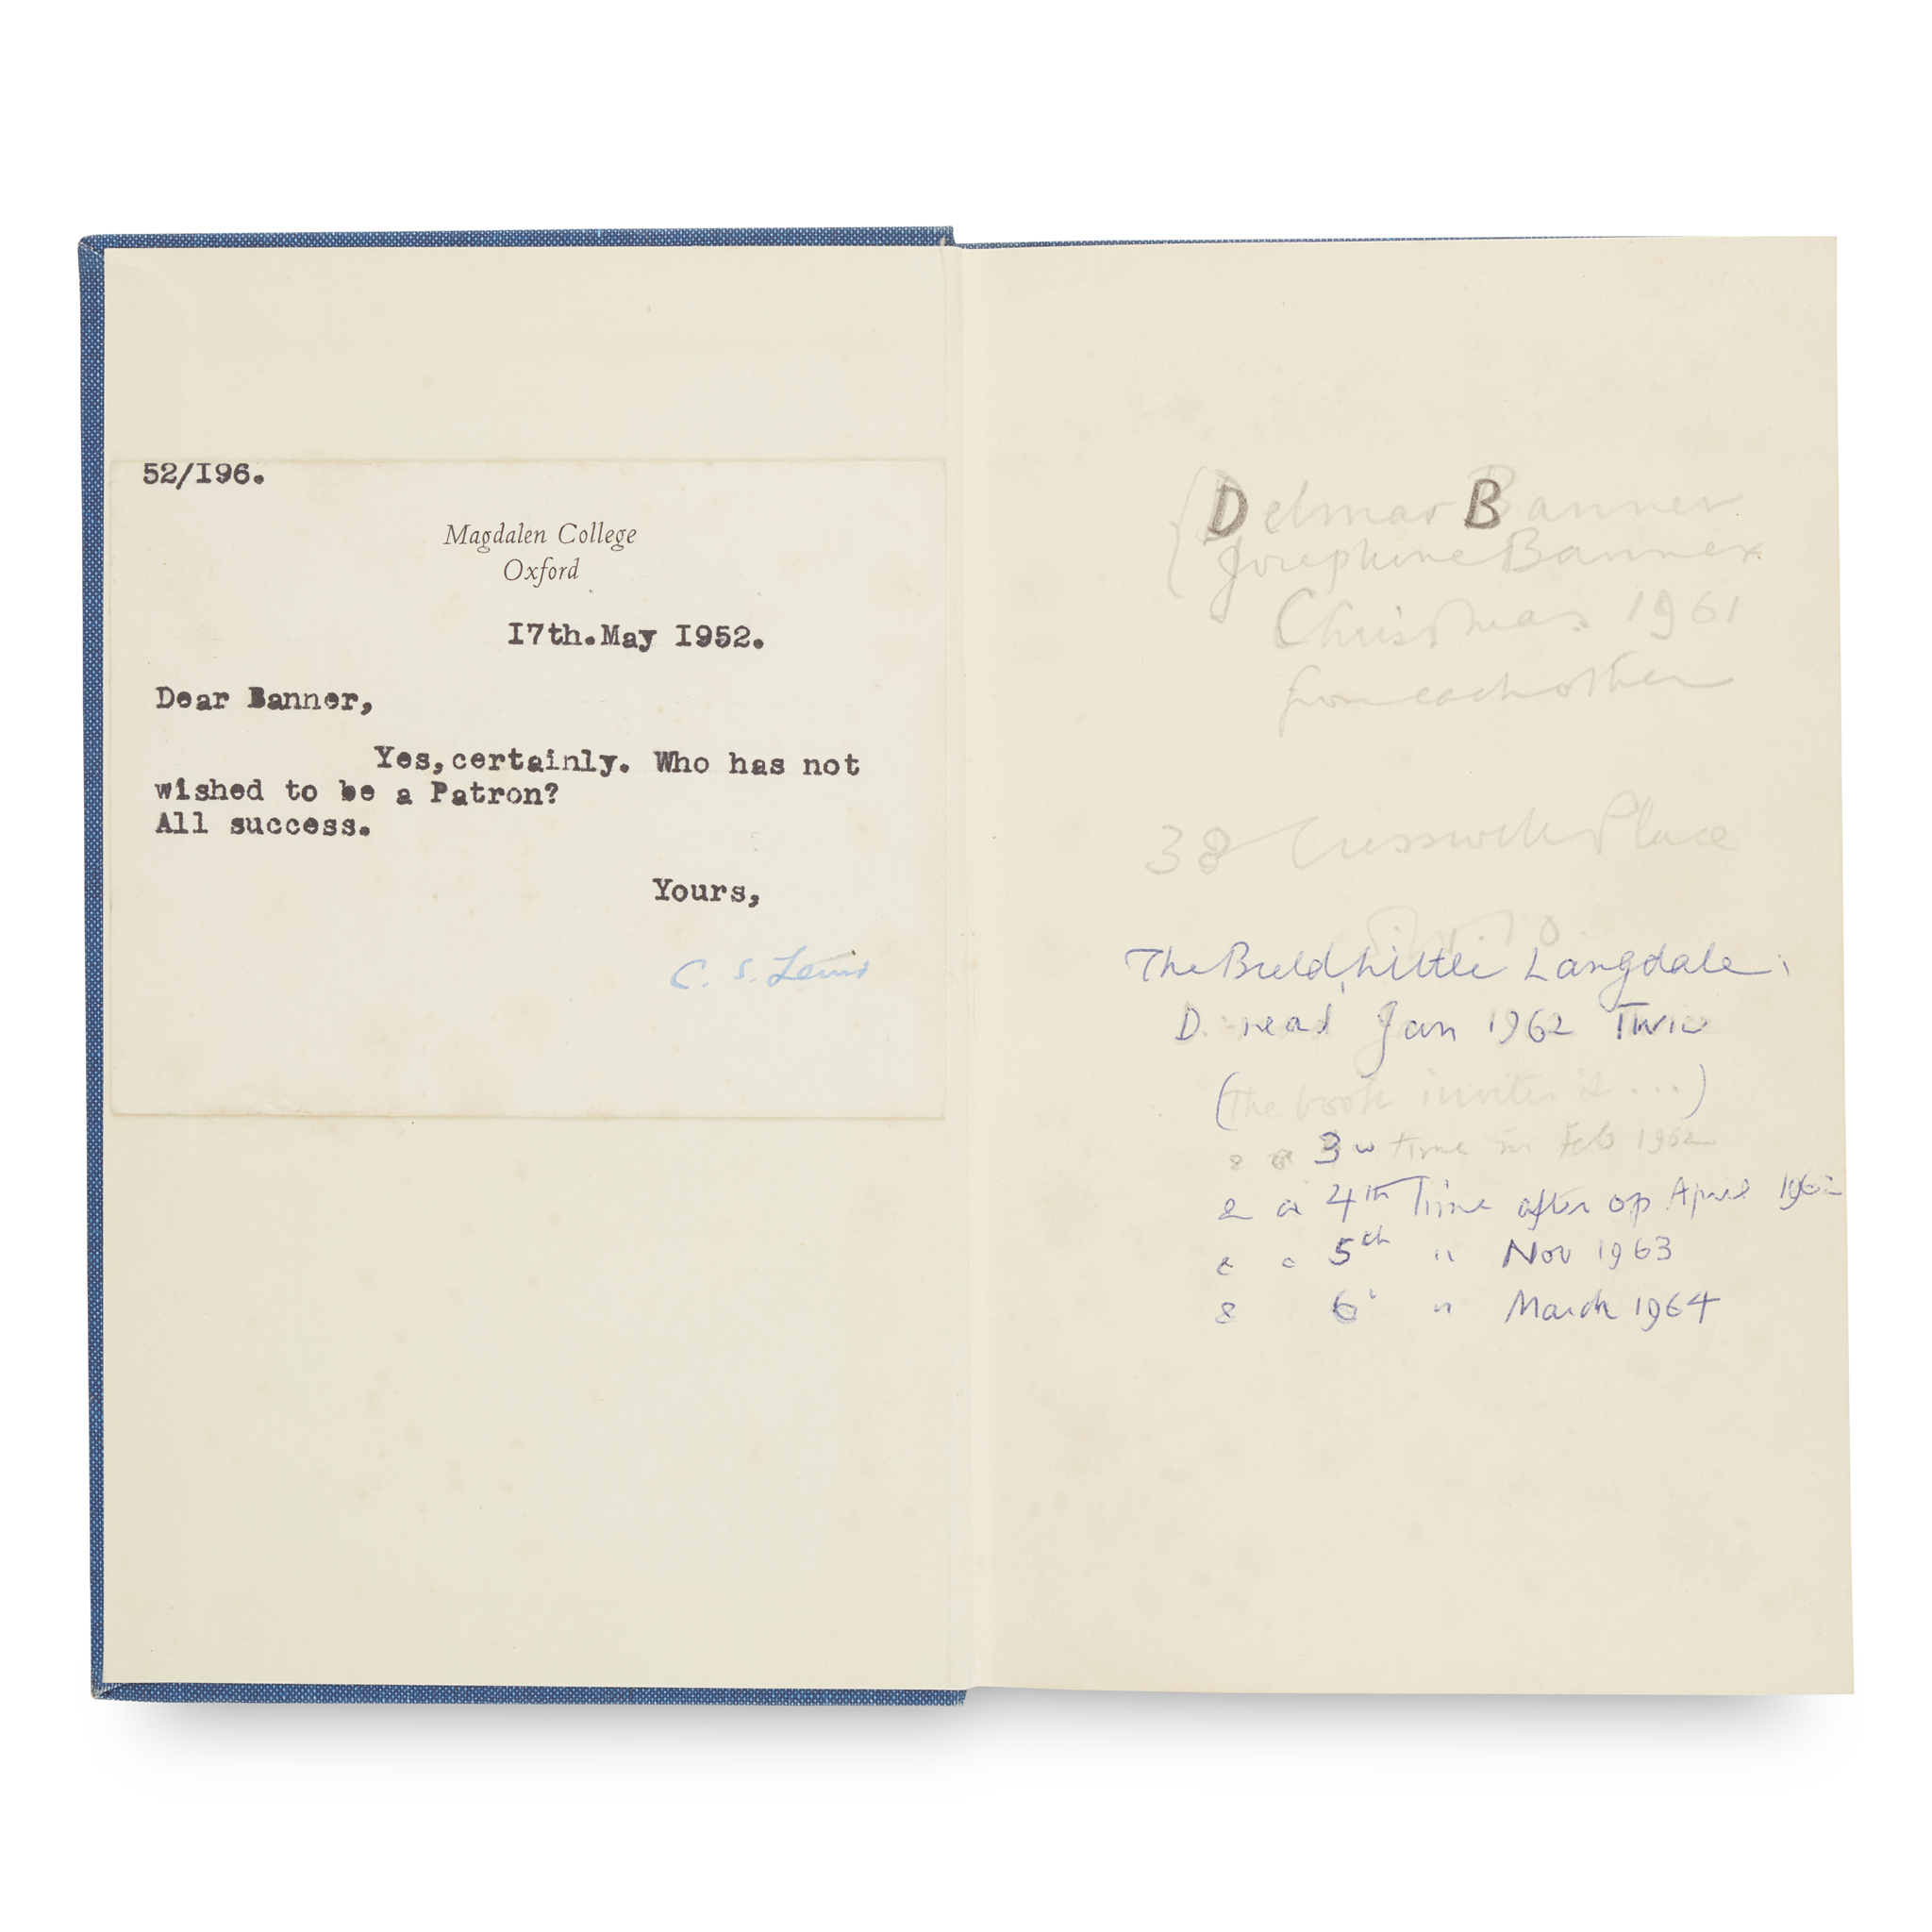 52/I96.
Magdalen College
Oxford
I7th.May I952.
Dear Banner,
Yes,certainly. Who has not
wished to be a Patron?
All success.
Yours,
C. S. Lewis
Delmar Banner
Josephine Banner
Christmas 1961
from each other
38 Cresswell Place
The Bield, Little Langdale
D. read Jan 1962 Twice
(The book invites it ...)
& a 3rd time in Feb 1962
& a 4th Time after op April 1962
& a 5th " Nov 1963
& 6 " March 1964